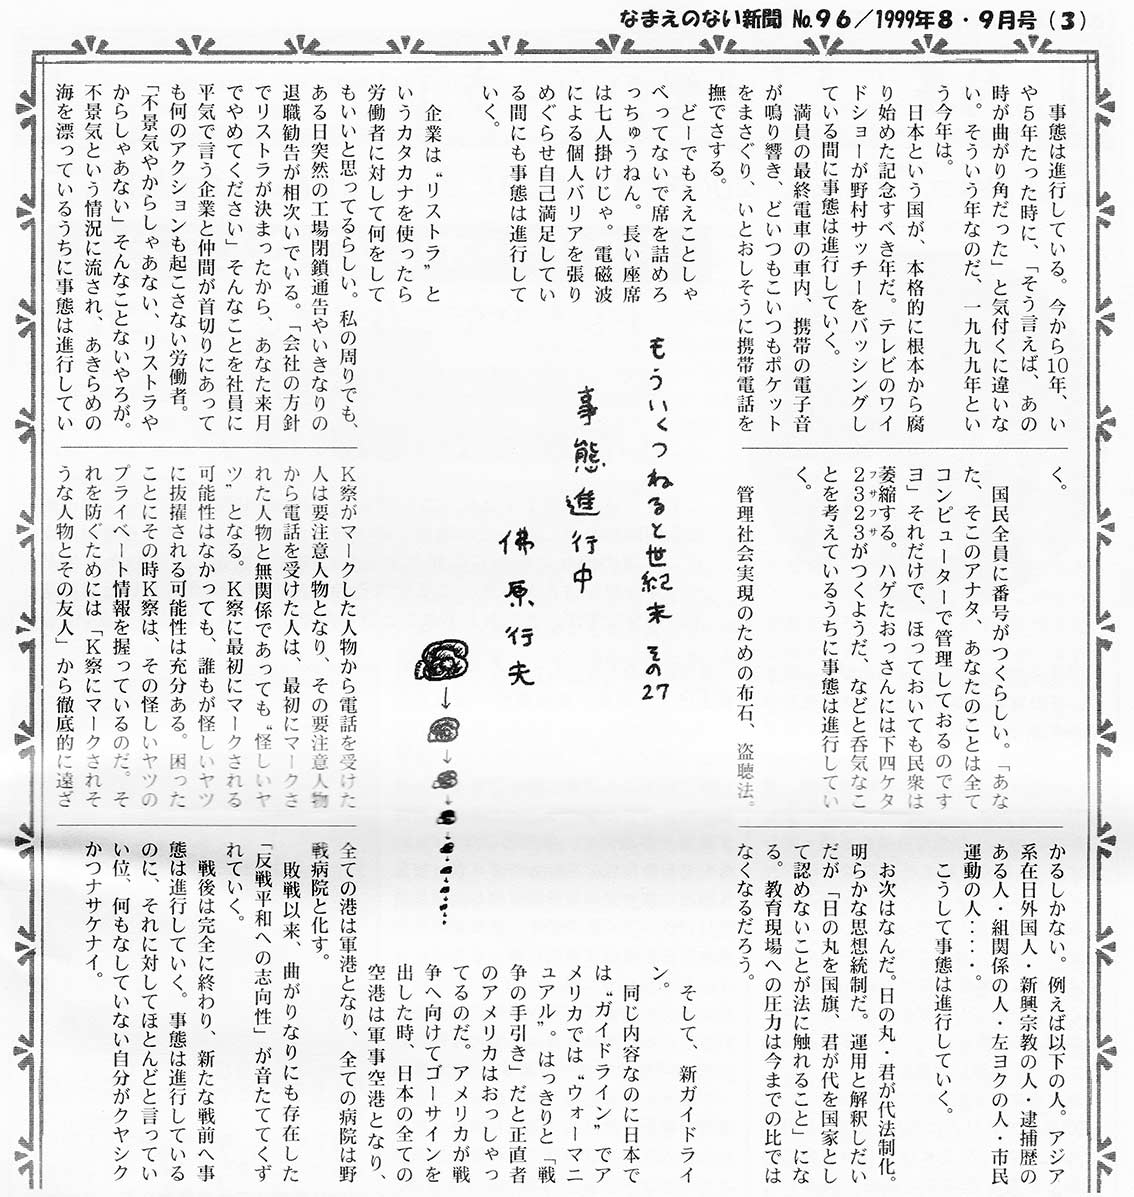 なまえのない新聞 No.96／1999年8・9月号（3）
もういくつねると世紀末 その27
事態進行中
佛原行夫
事態は進行している。今から10年、い
や５年たった時に、「そう言えば、あの
時が曲がり角だった」と気付くに違いな
い。そういう年なのだ、一九九九年とい
う今年は。
日本という国が、本格的に根本から腐
り始めた記念すべき年だ。テレビのワイ
ドショーが野村サッチーをバッシングし
ている間に事態は進行していく。
満員の最終電車の車内、携帯の電子音
が鳴り響き、どいつもこいつもポケット
をまさぐり、いとおしそうに携帯電話を
撫でさする。
どーでもええことしゃ
べってないで席を詰めろ
っちゅうねん。長い座席
は七人掛けじゃ。電磁波
による個人バリアを張り
めぐらせ自己満足してい
る間にも事態は進行して
いく。
企業は“リストラ”と
いうカタカナを使ったら
労働者に対して何をして
もいいと思ってるらしい。私の周りでも、
ある日突然の工場閉鎖通告やいきなりの
退職勧告が相次いでいる。「会社の方針
でリストラが決まったから、あなた来月
でやめてください」そんなことを社員に
平気で言う企業と仲間が首切りにあって
も何のアクションも起こさない労働者。
「不景気やからしゃあない、リストラや
からしゃあない」そんなことないやろが。
不景気という情況に流され、あきらめの
海を漂っているうちに事態は進行してい
く。
国民全員に番号がつくらしい。「あな
た、そこのアナタ、あなたのことは全て
コンピューターで管理しておるのです
ヨ」それだけで、ほっておいても民衆は
萎縮する。ハゲたおっさんには下四ケタ
２３２３がつくようだ、などと呑気なこ
フサフサ
とを考えているうちに事態は進行してい
く。
管理社会実現のための布石、盗聴法。
Ｋ察がマークした人物から電話を受けた
人は要注意人物となり、その要注意人物
から電話を受けた人は、最初にマークさ
れた人物と無関係であっても“怪しいヤ
ツ”となる。Ｋ察に最初にマークされる
可能性はなかっても、誰もが怪しいヤツ
に抜擢される可能性は充分ある。困った
ことにその時Ｋ察は、その怪しいヤツの
プライベート情報を握っているのだ。そ
れを防ぐためには「Ｋ察にマークされそ
うな人物とその友人」から徹底的に遠ざ
かるしかない。例えば以下の人。アジア
系在日外国人・新興宗教の人・逮捕歴の
ある人・組関係の人・左ヨクの人・市民
運動の人・・・・。
こうして事態は進行していく。
お次はなんだ。日の丸・君が代法制化。
明らかな思想統制だ。運用と解釈しだい
だが「日の丸を国旗、君が代を国家とし
て認めないことが法に触れること」にな
る。教育現場への圧力は今までの比では
なくなるだろう。
そして、新ガイドライ
ン。
同じ内容なのに日本で
は“ガイドライン”でア
メリカでは“ウォーマニ
ュアル”。はっきりと「戦
争の手引き」だと正直者
のアメリカはおっしゃっ
てるのだ。アメリカが戦
争へ向けてゴーサインを
出した時、日本の全ての
空港は軍事空港となり、
全ての港は軍港となり、全ての病院は野
戦病院と化す。
敗戦以来、曲がりなりにも存在した
「反戦平和への志向性」が音たててくず
れていく。
戦後は完全に終わり、新たな戦前へ事
態は進行していく。事態は進行している
のに、それに対してほとんどと言ってい
い位、何もなしていない自分がクヤシク
かつナサケナイ。